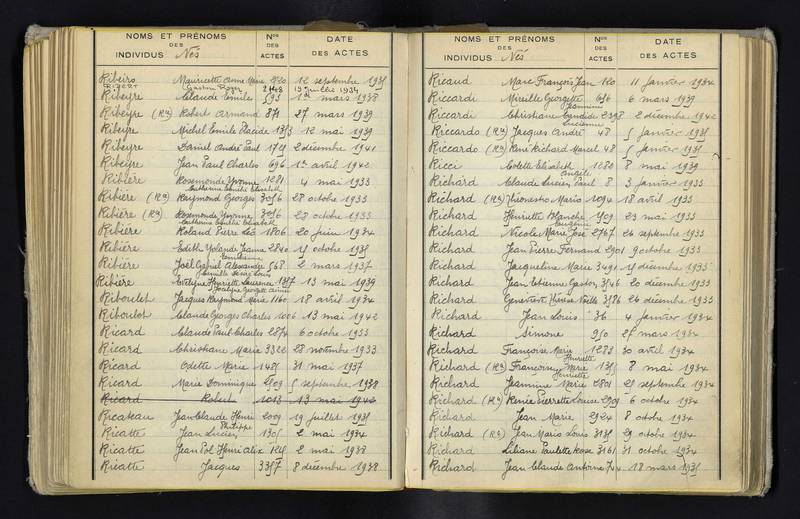 NOMS ET PRÉNOMS DES INDIVIDUS Nés Nos DES ACTES DATE DES ACTES
Ribeiro Mauricette Anne Marie 2820 12 septembre 1935
RIBERT Gaston Roger 2148 13 juillet 1934
Ribeyre Claude Emile 593 1er mars 1938
Ribeyre (Ra) Robert Armand 871 27 mars 1939
Ribeyre Michel Emile Placide 1313 12 mai 1939
Ribeyre Daniel André Paul 1729 2 décembre 1941
Ribeyre Jean Paul Charles 696 1er avril 1942
Ribière Rosemonde Yvonne 1281 4 mai 1933
Catherine Emilie Elisabeth
Ribière (Ra) Raymond Georges 3056 28 octobre 1933
Ribière (Ra) Rosemonde Yvonne 3056 28 octobre 1933
Catherine Emilie Elisabeth
Ribière Roland Pierre Léo 1806 20 juin 1934
Ribière Edith Yolande Jeanne 2840 15 octobre 1935
Emilienne
Ribière Joël Gabriel Alexandre 568 2 mars 1937
Camille Serge Louis
Ribière Evelyne Henriette Laurence 1357 13 mai 1939
Jocelyne Georgette Aimée
Riboulet Jacques Raymond René 1160 18 avril 1934
Riboulot Claude Georges Charles 1006 13 mai 1942
Ricard Claude Paul Charles 2874 6 octobre 1933
Ricard Christiane Marie 3322 28 novembre 1933
Ricard Odette Marie 1485 31 mai 1937
Ricard Marie Dominique 2509 5 septembre 1938
Ricard Robert 1013 13 mai 1942
Ricateau Jean Claude Henri 2009 19 juillet 1935
Philippe
Ricatte Jean Lucien 1305 2 mai 1934
Ricatte Jean Pol Henri Alix 1218 2 mai 1938
Ricatte Jacques 3357 8 décembre 1938
NOMS ET PRÉNOMS DES INDIVIDUS Nés Nos DES ACTES DATE DES ACTES
Ricaud Marc François Jean 120 11 janvier 1934
Riccardi Mireille Georgette 656 6 mars 1939
Jasmine
Riccardi Christiane Candide 2398 2 décembre 1942
Lucienne
Riccardo (Ra) Jacques André 48 5 janvier 1935
Riccardo (Ra) René Richard Marcel 48 5 janvier 1935
Ricci Colette Elisabeth 1280 8 mai 1939
Angèle
Richard Claude Lucien Paul 8 3 janvier 1933
Richard (Ra) Thionesto Mario 1094 18 avril 1933
Richard Henriette Blanche 1509 23 mai 1933
Eugénie
Richard Nicole Marie José 2767 26 septembre 1933
Richard Jean Pierre Fernand 2901 9 octobre 1933
Richard Jacqueline Marie 3491 15 décembre 1933
Richard Jean Etienne Gaston 3546 20 décembre 1933
Richard Geneviève Thérèse Noëlle 3586 26 décembre 1933
Richard Jean Louis 36 4 janvier 1934
Richard Simone 950 27 mars 1934
Richard Françoise Marie 1283 30 avril 1934
Henriette
Richard (Ra) Françoise Marie 1315 8 mai 1934
Henriette
Richard Jeannine Marie 2801 29 septembre 1934
Richard (Ra) Renée Pierrette Louise 2909 6 octobre 1934
Richard Jean Marie 2924 8 octobre 1934
Richard (Ra) Jean Marie Louis 3135 29 octobre 1934
Richard Liliane Paulette Rose 3161 31 octobre 1934
Richard Jean Claude Antoine 724 18 mars 1935